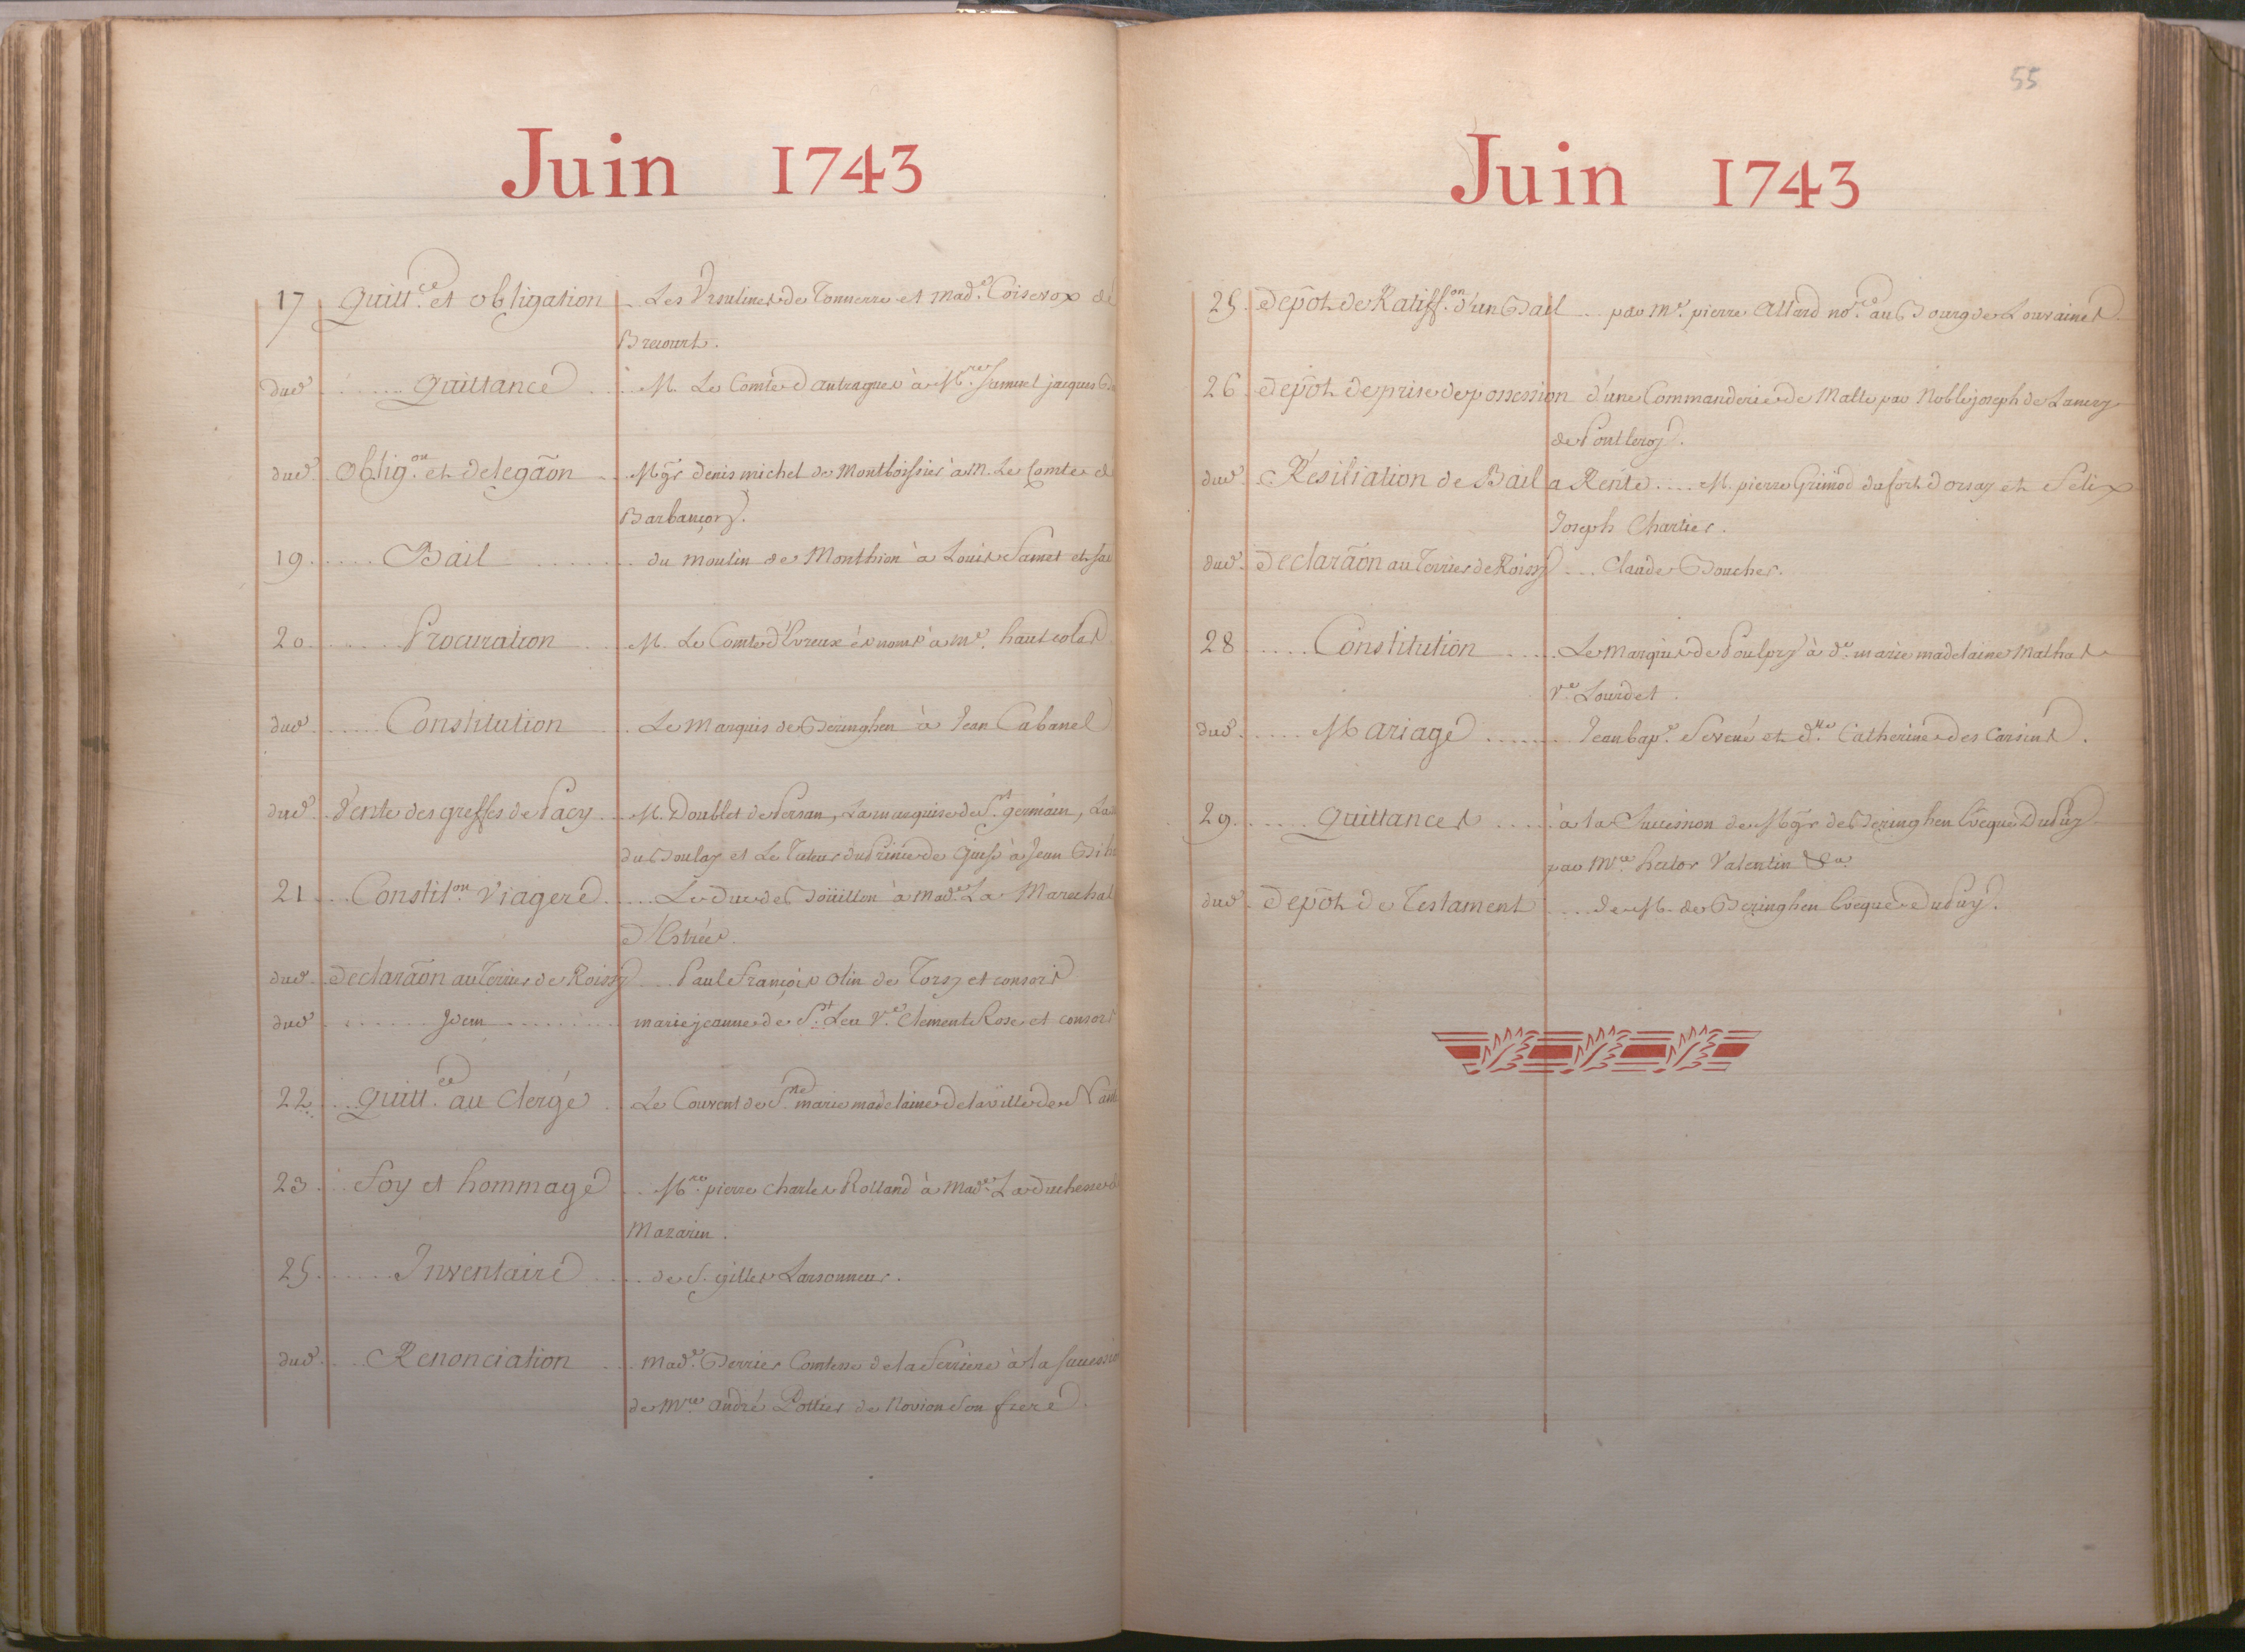 Juin 1743
17 Quitt.ce et obligation Les Ursulines de Tonnerre et Mad.e Coisevox de
Brecourt.
dud. Quittance M. Le Comte d'antragues à M.re Samuel jacques
dud. Oblig.on et delegãon Mgr denis michel de Montboissier à M. Le Comte de
Barbançon.
19 Bail du moulin de Monthion à Louis Samet et sa
20 Procuration M. Le Comte d'Evreux és noms à me. hautcolas
dud. Constitution Le marquis de Beringhen à Jean Cabanel
dud. Vente des greffes de Pacy M. Doublet de Persan, La marquise de St. germain, La
du Boulay et Le Tuteur du Prince de Guise à Jean
21 Constit.on viagere Le Duc de Boüillon à Mad.e La Marechal
d'Estrées.
dud. Declarãon au Terrier de Roissy Paul François Olin de Torsy et consors
dud. Idem marie jeanne de St. Leu Ve. Clement Rose et consors
22 Quitt.ce au Clergé Le Couvent de Ste. marie madelaine de la ville de
23 Foy et hommage M.re pierre Charles Rolland à Mad.e La duchesse de
Mazarin.
25 Inventaire de S. gilles Larsonneur.
dud. Renonciation Mad.e Berrier Comtesse de la Ferriere à la succession
de M.re andré Pottier de Novion son frere.
55
Juin 1743
25. Depôt de Ratiff.on d'un Bail par Me. pierre Allard no.re au Bourg de Louraines
26 Depôt de prise de possession d'une Commanderie de Malte par Noble joseph de Lancry
de Pontleroy.
dud. Résiliation de Bail a Rente M. pierre Grimod dufort d'orsay et Felix
Joseph Chartier.
dud. Declarãon au Terrier de Roissy Claude Boucher.
28 Constitution Le Marquis de Poulpry à de. marie madelaine Mathas
Ve. Lourdet.
dud. Mariage Jean bap.e Severé et d.lle Catherine des Carsins.
29 Quittances à la Succession de Mgr de Beringhen Eveque Du Puy
par M.re hector Valentin &a.
dud. Depôt de Testament de M. de Beringhen Eveque du Puy.